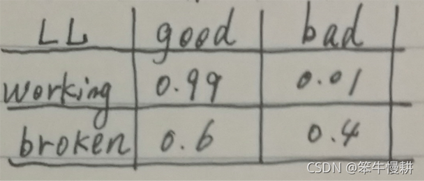 LL good bad
working 0.99 0.01
broken 0.6 0.4
CSDN @笨牛慢耕